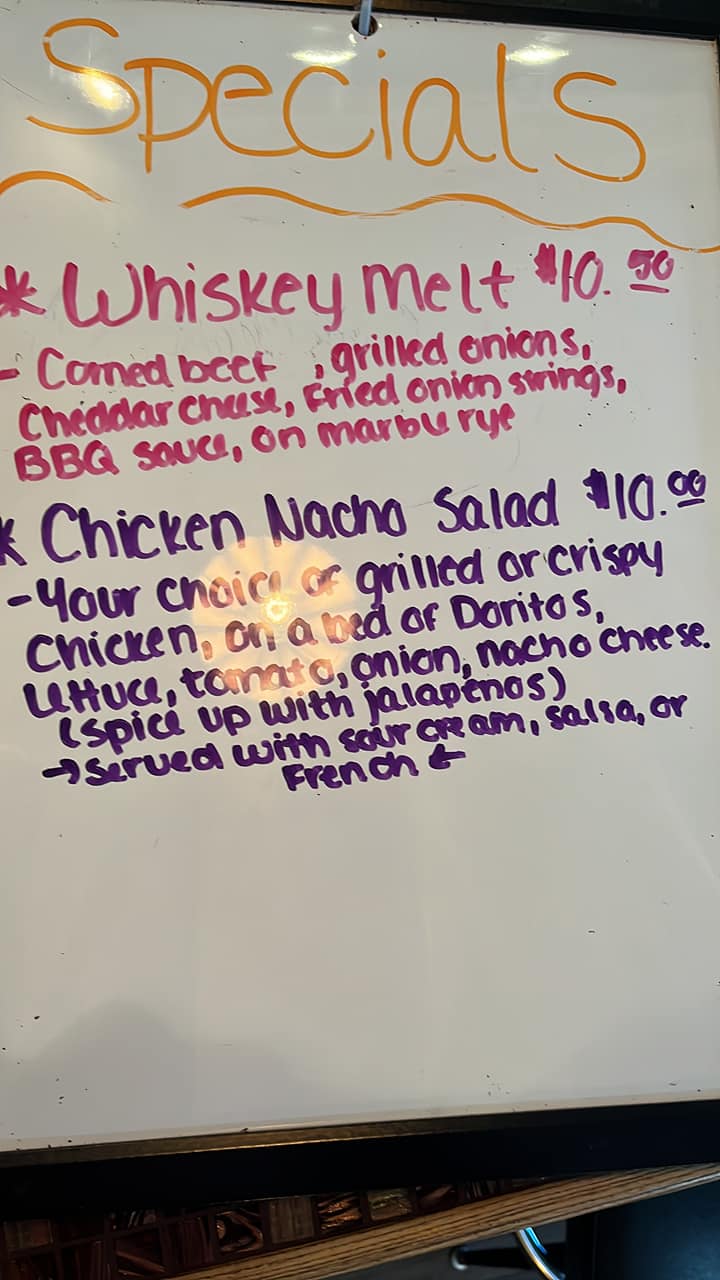 Specials
* Whiskey Melt $10.50
- Corned beef , grilled onions,
Cheddar cheese, Fried onion strings,
BBQ sauce, on marble rye
* Chicken Nacho Salad $10.00
- Your choice of grilled or crispy
Chicken, on a bed of Doritos,
Lettuce, tomato, onion, nacho cheese.
(spice up with jalapeños)
→ Served with sour cream, salsa, or
French ←